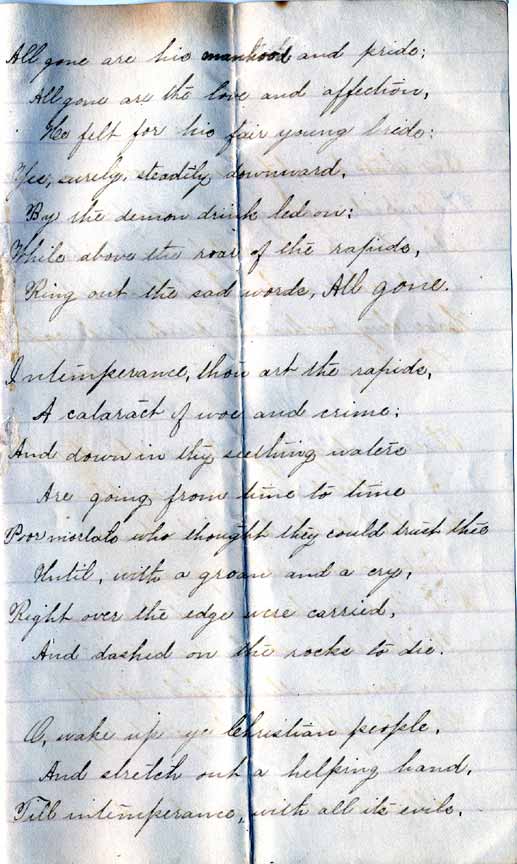 All gone are his manhood and pride;
All gone are the love and affection,
He felt for his fair young bride;
Yes, surely, steadily, downward,
By the demon drink led on;
While above the roar of the rapids,
Ring out the sad words, All gone.
Intemperance, thou art the rapids,
A cataract of woe and crime;
And down in thy seething waters
Are going from time to time
Poor mortals who thought they could trust thee
Until, with a groan and a cry,
Right over the edge were carried,
And dashed on the rocks to die.
O, wake up ye Christian people,
And stretch out a helping hand,
Till intemperance, with all its evils,